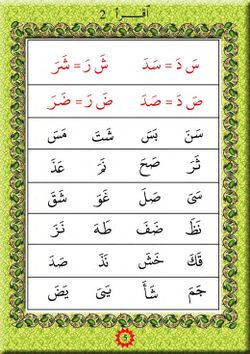 اَقرأ 2
سَ دَ = سَدَ شَ رَ = شَرَ
صَ دَ = صَدَ ضَ رَ = ضَرَ
سَنَ بَسَ شَتَ مَسَ
ثَرَ صَحَ نَمَ عَذَ
سَىَ صَلَ غَوَ شَقَ
نَظَ ضَفَ طَهَ نَزَ
قَكَ خَشَ نَذَ صَدَ
جَمَ شَأَ يَىَ يَضَ